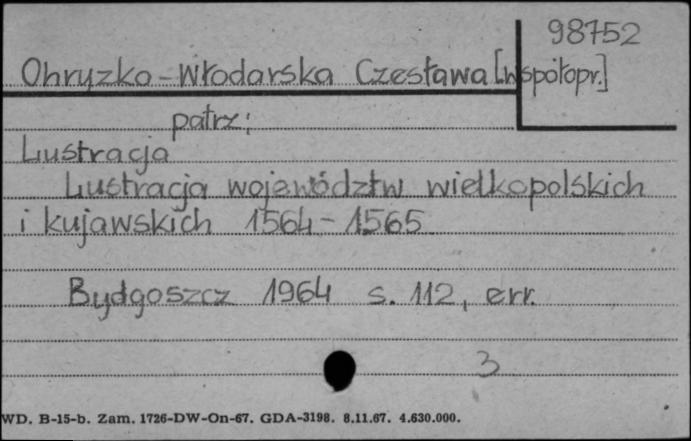 98752
Ohryzko-Włodarska Czesława [współopr.]
patrz:
Lustracja
Lustracja województw wielkopolskich
i kujawskich 1564-1565
Bydgoszcz 1964 s. 112, err.
3
WD. B-15-b. Zam. 1726-DW-On-67. GDA-3198. 8.11.67. 4.630.000.